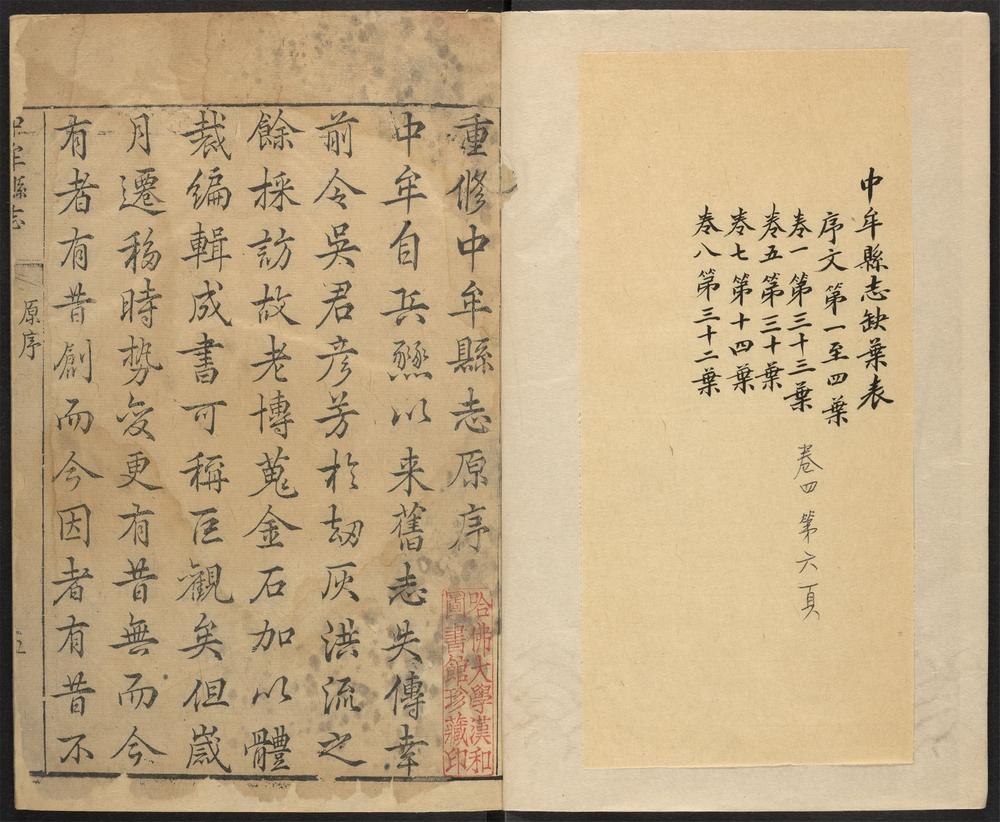 中牟縣志缺葉表
序文第一至四葉
卷一第三十三葉
卷五第三十葉
卷七第十四葉
卷八第三十二葉
卷四第六頁
重修中牟縣志原序
中牟自兵燹以来舊志失傳幸
前令吳君彦芳扵刼灰洪流之
餘採訪故老博蒐金石加以體
裁編輯成書可稱巨觀矣但歲
月遷移時勢変更有昔無而今
有者有昔創而今因者有昔不
哈佛大學漢和
圖書館珍藏印
中牟縣志
原序
五